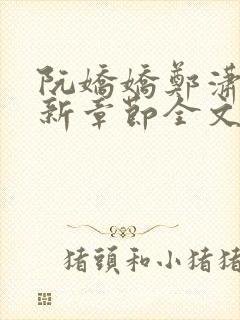 阮嬌嬌鄭瀟
新章節全文
猪頭和小猪猪